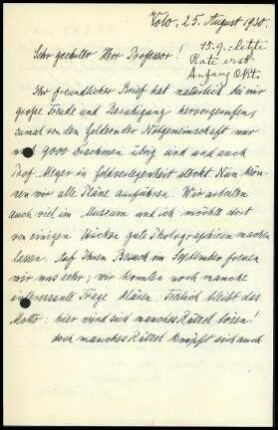 Volo, 25. August 1930.
15.9.: letzte
Rate erst
Anfang Okt.
Sehr geehrter Herr Professor!
Ihr freundlicher Brief hat natürlich bei mir
große Freude und Beruhigung hervorgerufen,
zumal von den Geldern der Notgemeinschaft nur
noch 9000 Drachmen übrig sind und auch
Prof. Meyer in Geldverlegenheit steckt. Nun kön-
nen wir alle Pläne ausführen. Wir arbeiten
auch viel im Museum und ich möchte dort
von einigen Stücken gute Photographieen machen
lassen. Auf Ihren Besuch im September freuen
wir uns sehr; wir könnten noch manche
interessante Frage klären. Freilich bleibt das
Motto: hier wird sich manches Rätsel lösen!
doch manches Rätsel knüpft sich auch